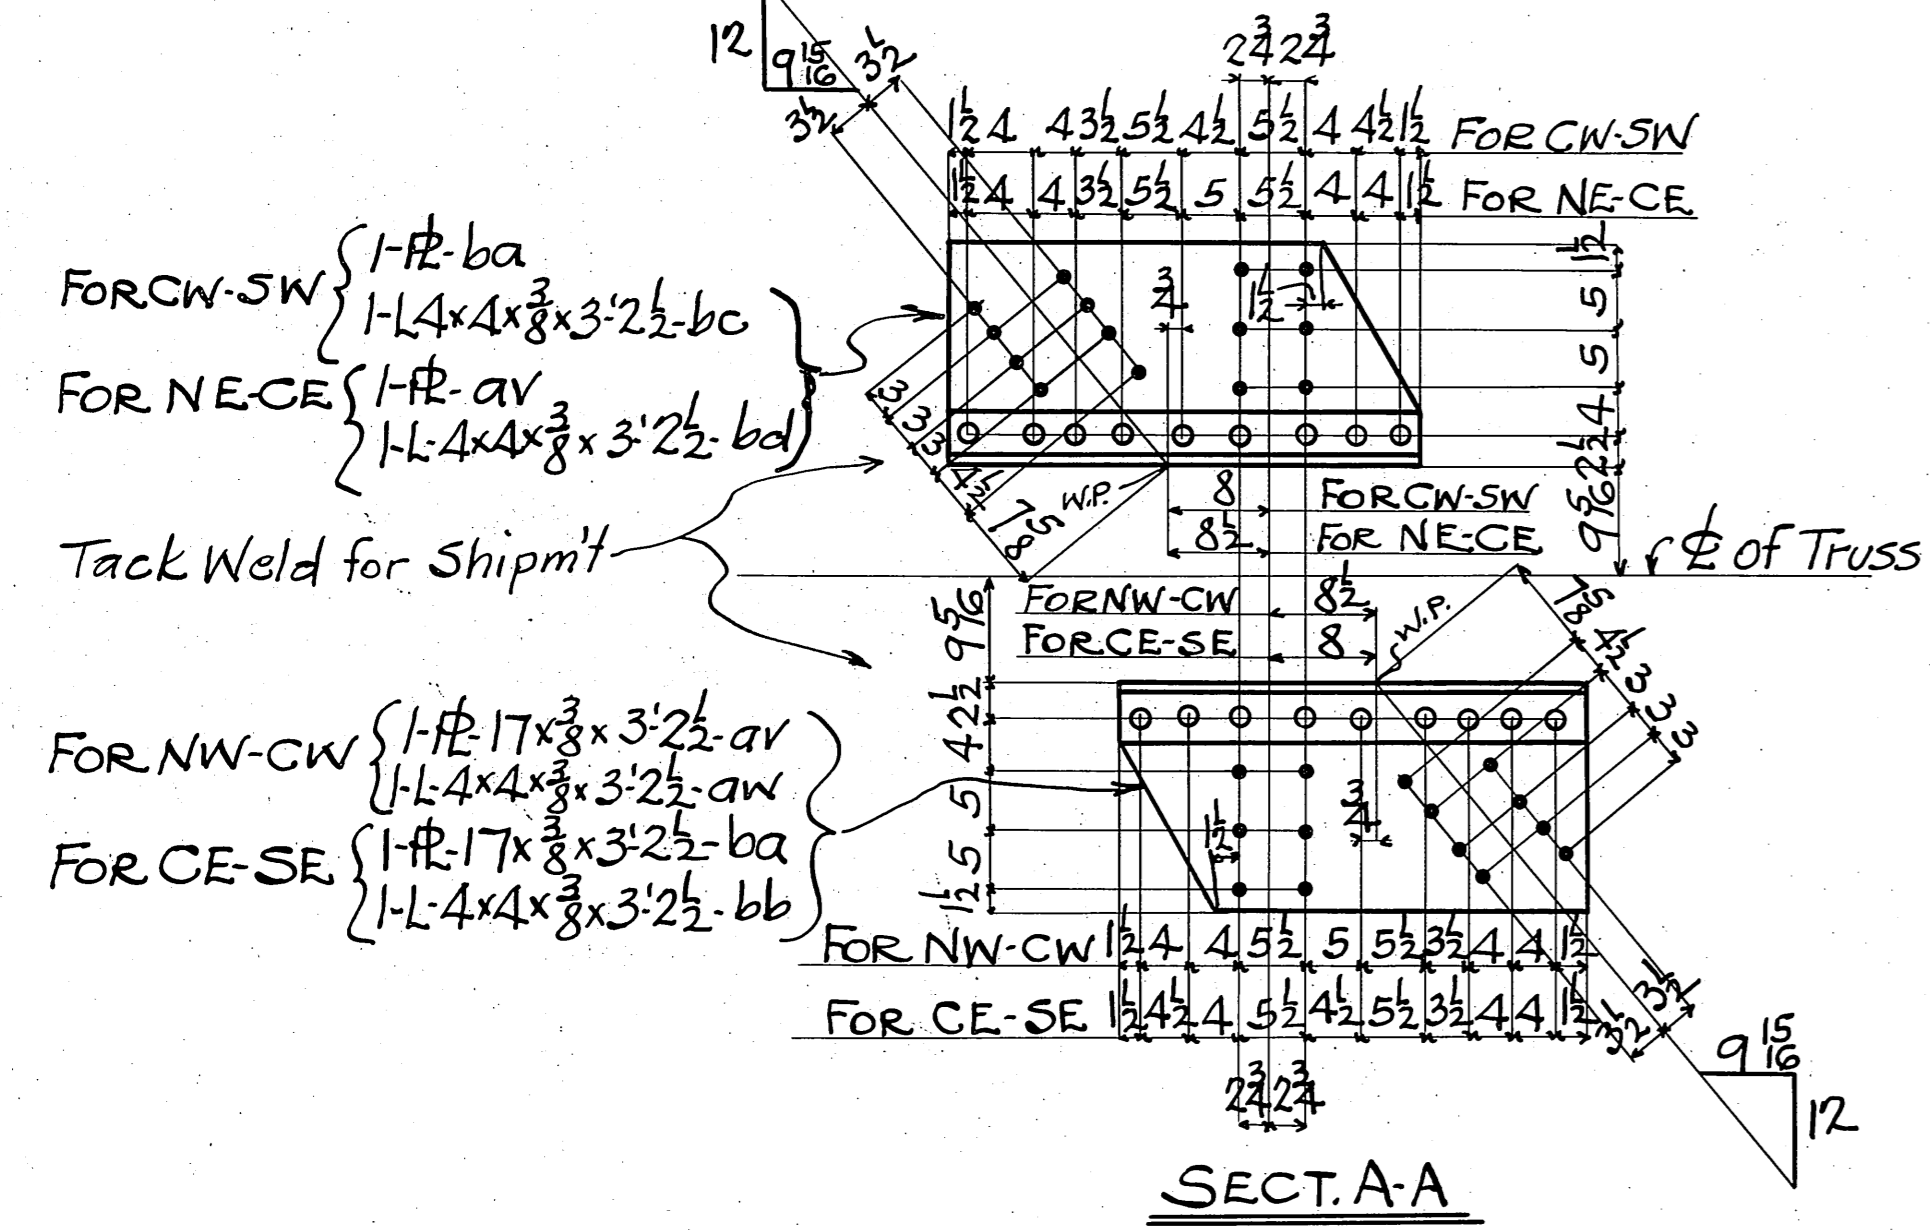 12
9 15/16
3 1/2
3 1/2
2 3/4 2 3/4
1 1/2 4 4 3 1/2 5 1/2 4 1/2 5 1/2 4 4 1/2 1 1/2 FOR CW-SW
1 1/2 4 4 3 1/2 5 1/2 5 5 1/2 4 4 1 1/2 FOR NE-CE
FOR CW-SW { 1-PL-ba
1-L4x4x3/8x3'-2 1/2-bc
FOR NE-CE { 1-PL-av
1-L-4x4x3/8x3'-2 1/2-bd
3/4
1 1/2
1 1/2
5
5
4
2 1/2
9 5/16
3
3
3
4 1/2
7 5/8
W.P.
8 FOR CW-SW
8 1/2 FOR NE-CE
Tack Weld for Shipm't
℄ of Truss
FOR NW-CW 8 1/2
FOR CE-SE 8
W.P.
7 5/8
4 1/2
3
3
3
9 5/16
2 1/2
4
5
5
1 1/2
FOR NW-CW { 1-PL-17x3/8x3'-2 1/2-av
1-L-4x4x3/8x3'-2 1/2-aw
FOR CE-SE { 1-PL-17x3/8x3'-2 1/2-ba
1-L-4x4x3/8x3'-2 1/2-bb
3/4
1 1/2
FOR NW-CW 1 1/2 4 4 5 1/2 5 5 1/2 3 1/2 4 4 1 1/2
FOR CE-SE 1 1/2 4 1/2 4 5 1/2 4 1/2 5 1/2 3 1/2 4 4 1 1/2
3 1/2
3 1/2
9 15/16
12
2 3/4 2 3/4
SECT. A-A